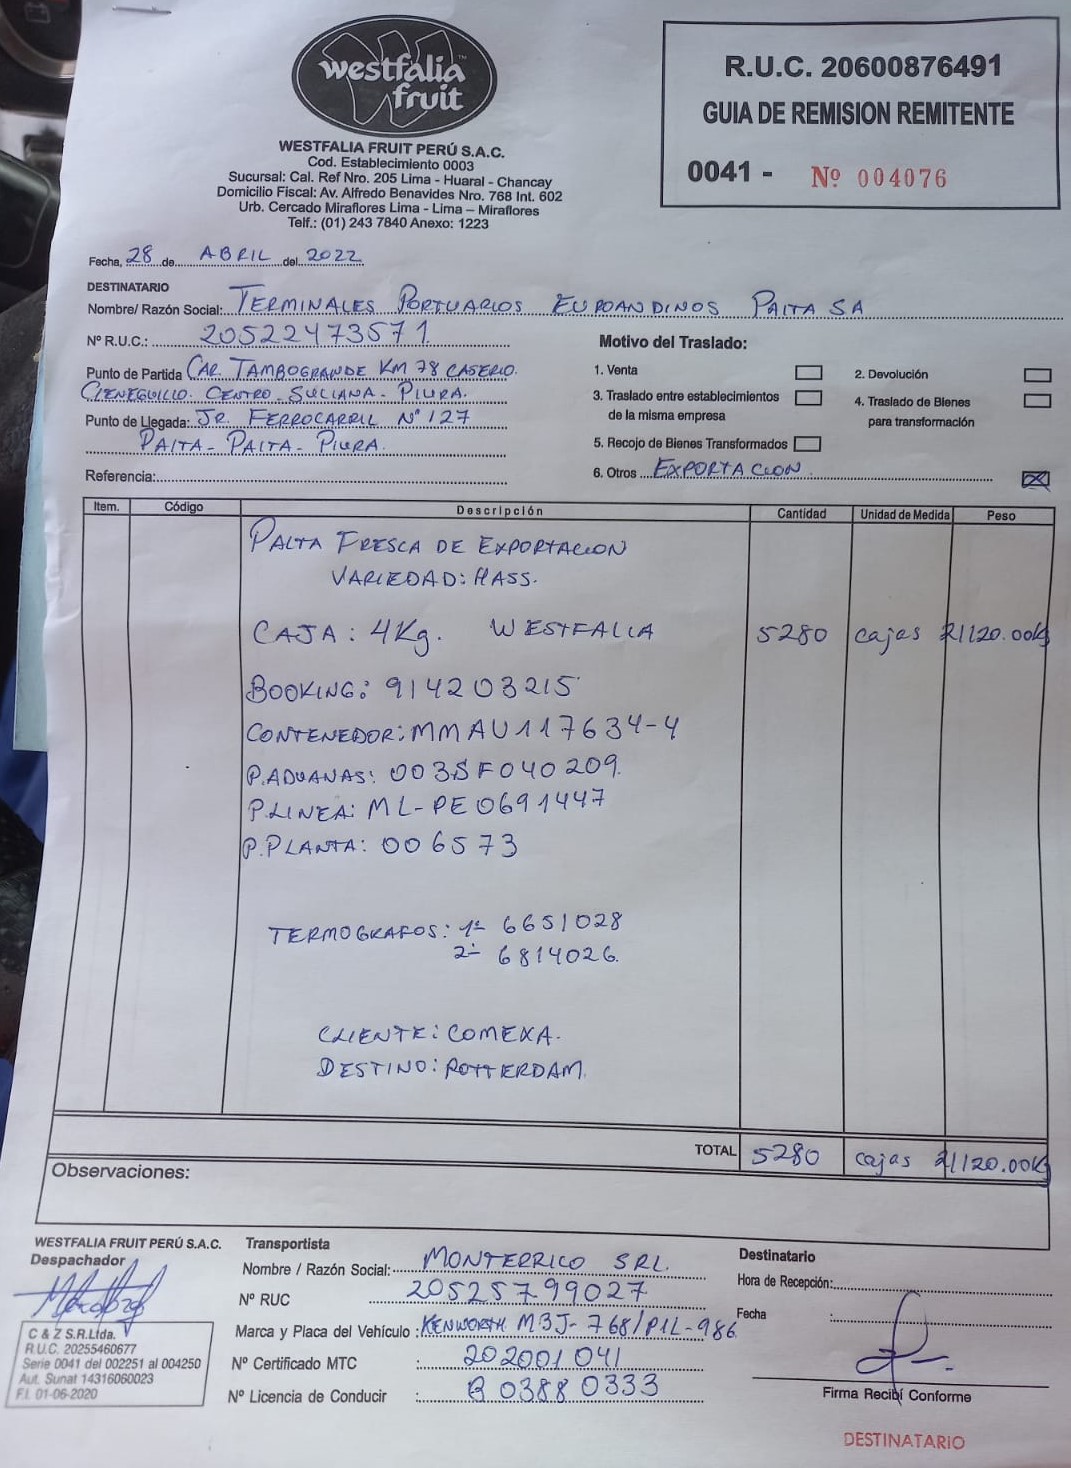 westfalia
fruit
WESTFALIA FRUIT PERÚ S.A.C.
Cod. Establecimiento 0003
Sucursal: Cal. Ref Nro. 205 Lima - Huaral - Chancay
Domicilio Fiscal: Av. Alfredo Benavides Nro. 768 Int. 602
Urb. Cercado Miraflores Lima - Lima – Miraflores
Telf.: (01) 243 7840 Anexo: 1223
R.U.C. 20600876491
GUIA DE REMISION REMITENTE
0041 - Nº 004076
Fecha, 28 de ABRIL del 2022
DESTINATARIO
Nombre/ Razón Social: TERMINALES PORTUARIOS EUROANDINOS PAITA SA
Nº R.U.C.: 20522473571.
Punto de Partida CAR. TAMBOGRANDE KM 78 CASERIO.
CIENEGUILLO. CENTRO - SULLANA - PIURA.
Punto de Llegada: JR. FERROCARRIL Nº 127
PAITA - PAITA - PIURA.
Referencia:
Motivo del Traslado:
1. Venta
2. Devolución
3. Traslado entre establecimientos
de la misma empresa
4. Traslado de Bienes
para transformación
5. Recojo de Bienes Transformados
6. Otros EXPORTACION
Item. Código Descripción Cantidad Unidad de Medida Peso
PALTA FRESCA DE EXPORTACION
VARIEDAD: HASS.
CAJA: 4Kg. WESTFALIA 5280 cajas 21120.00Kg
BOOKING: 914203215
CONTENEDOR: MMAU117634-4
P.ADUANAS: 003SF040209.
P.LINEA: ML-PE0691447
P.PLANTA: 006573
TERMOGRAFOS: 1º 6651028
2º 6814026.
CLIENTE: COMEXA.
DESTINO: ROTTERDAM.
TOTAL 5280 cajas 21120.00Kg
Observaciones:
WESTFALIA FRUIT PERÚ S.A.C.
Despachador
C & Z S.R.Ltda.
R.U.C. 20255460677
Serie 0041 del 002251 al 004250
Aut. Sunat 14316060023
F.I. 01-06-2020
Transportista
Nombre / Razón Social: MONTERRICO SRL.
Nº RUC 20525799027
Marca y Placa del Vehículo : KENWORTH M3J-768/P1L-986
Nº Certificado MTC : 202001041
Nº Licencia de Conducir : B03880333
Destinatario
Hora de Recepción:
Fecha :
Firma Recibí Conforme
DESTINATARIO